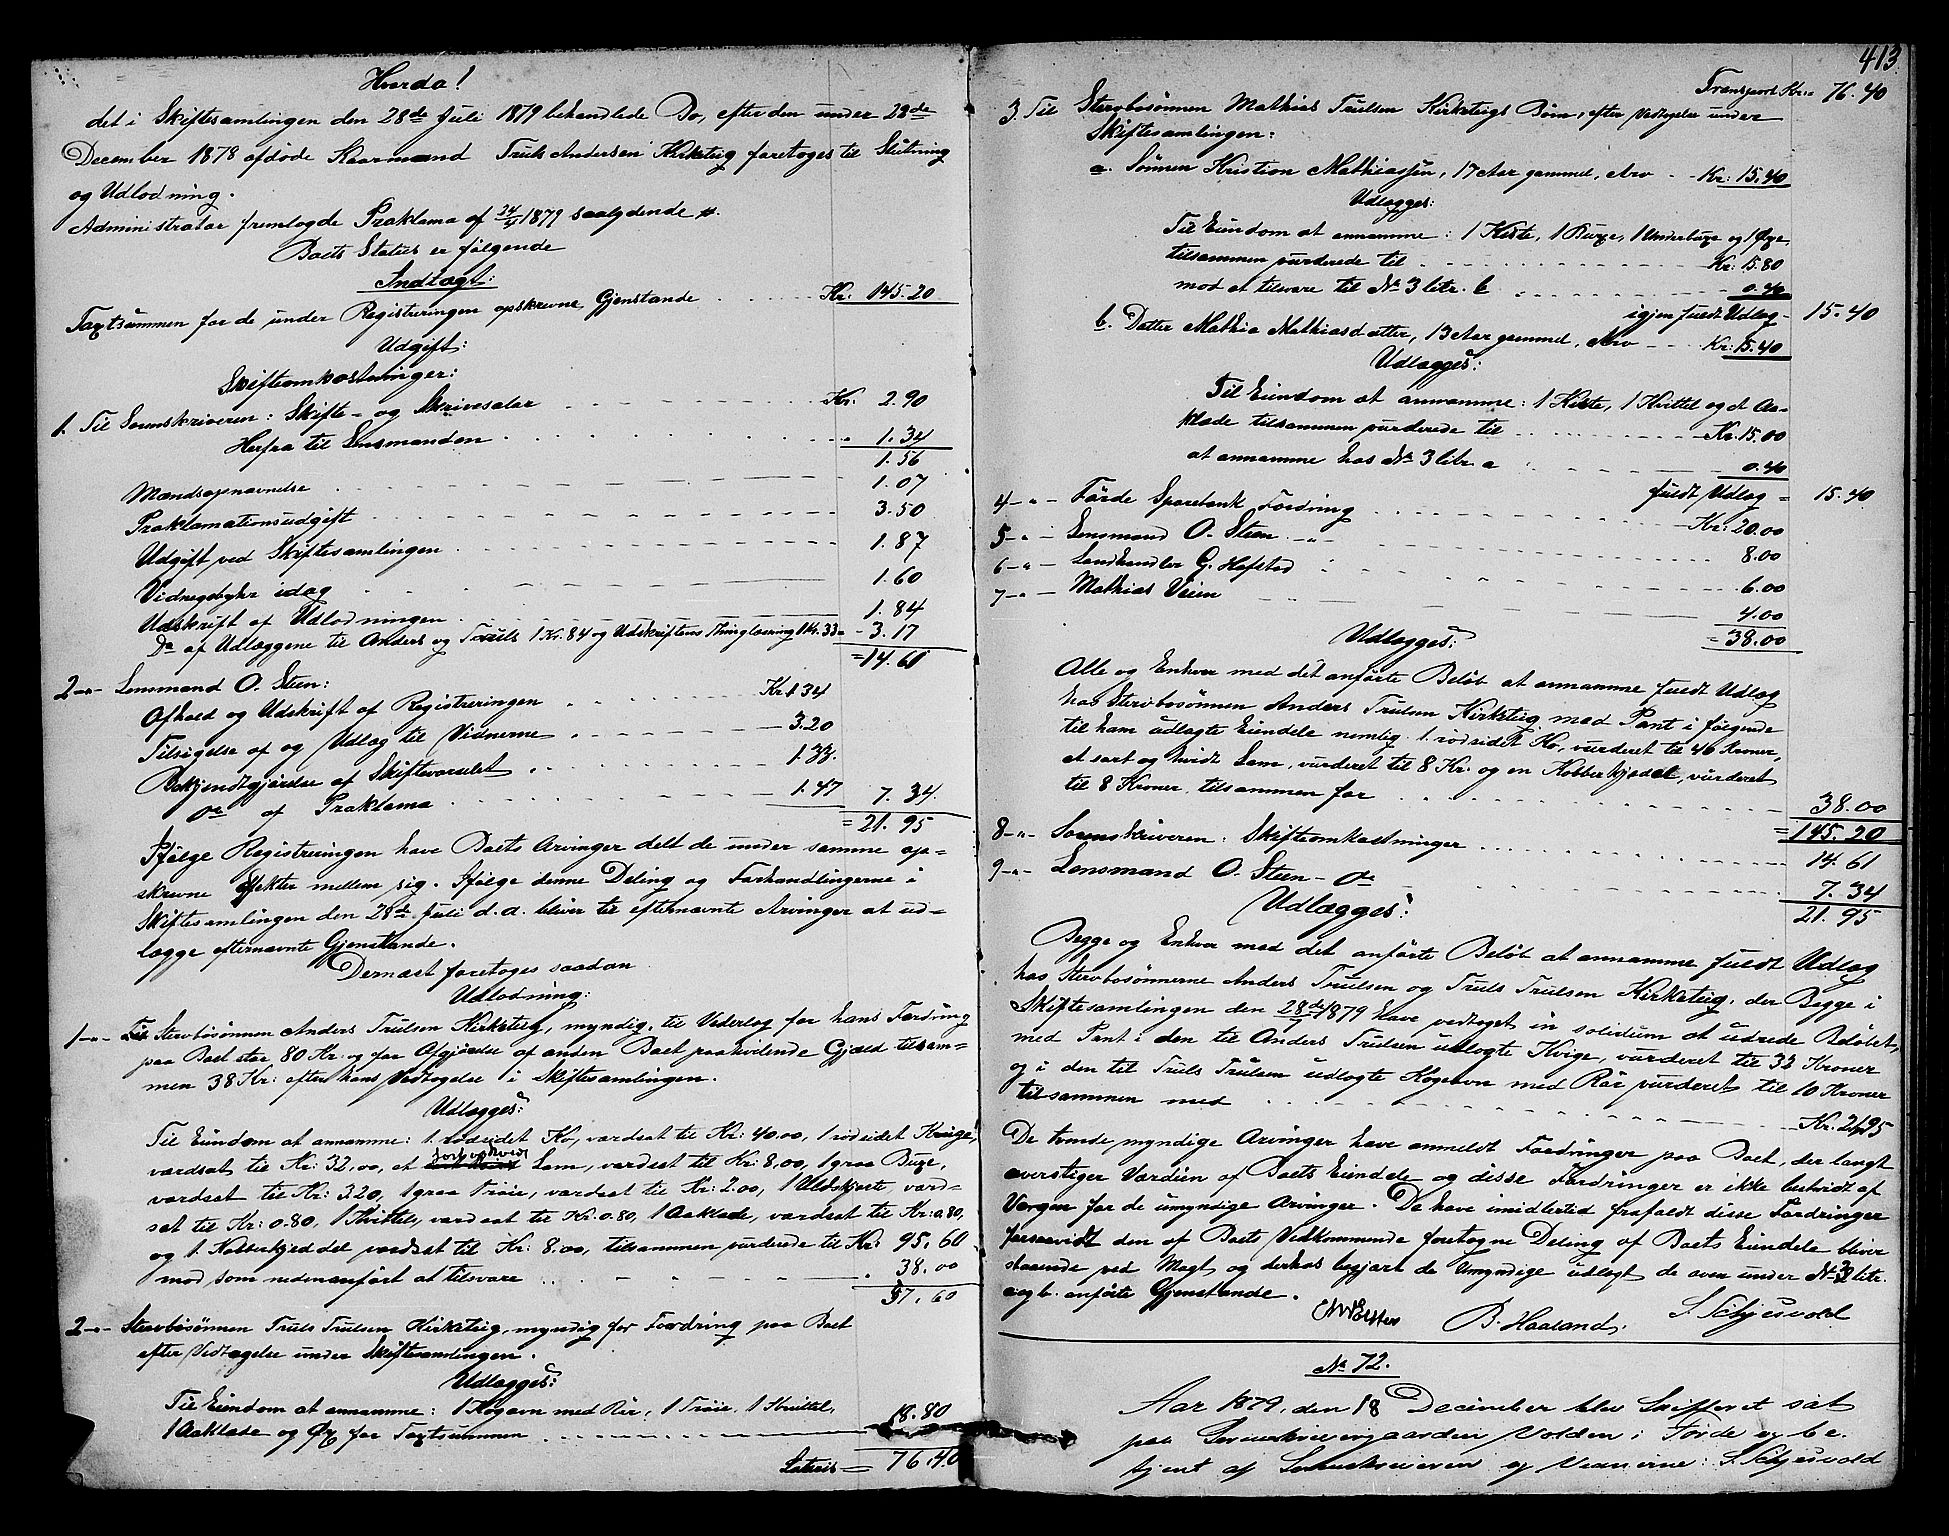 Hvorda!
det i Skiftesamlingen den 28de Juli 1879 behandlede Bo, efter den under 28de
December 1878 afdøde Kaarmand Truls Andersen Kirketeig foretoges til Slutning
og Udlodning.
Administrator fremlagde Proklama af 24/4 1879 saalydende #.
Boets Status er følgende
Indtægt:
Taxtsummen for de under Registreringen opskrevne Gjenstande . . . . Kr: 145.20
Udgift:
Skifteomkostninger:
1. Til Sorenskriveren: Skifte- og Skrivesalar . . . Kr: 2.90
Herfra til Lensmanden . . . " 1.34
1.56
Mændsopnævnelse . . . 1.07
Proklamationsudgift . . . 3.50
Udgift ved Skiftesamlingen . . . 1.87
Vidnegebyhr idag . . . 1.60
Udskrift af Udlodningen . . . 1.84
Do af Udlæggene til Anders og Truls 1 Kr. 84 og Udskriftens Thinglæsning 1 Kr. 33 = - 3.17
= 14.61
2 -"- Lensmand O. Steen:
Afhold og Udskrift af Registreringen . . . Kr 1.34
Tilsigelse af og Udlæg til Vidnerne . . . 3.20
Bekjendtgjørelse af Skiftevarselet . . . 1.33.
Do af Proklama . . . 1.47 7.34.
= 21.95
Ifølge Registreringen have Boets Arvinger delt de under samme op-
skrevne Effekter mellem sig. Ifølge denne Deling og Forhandlingerne i
Skiftesamlingen den 28de Juli d.a. bliver til efternævnte Arvinger at ud-
lægge efternævnte Gjenstande.
Dernæst foretoges saadan
Udlodning:
1 -"- Til Stervbosønnen Anders Trulsen Kirketeig, myndig, til Vederlag for hans Fordring
paa Boet stor 80 Kr. og for Afgjørelse af anden Boet paahvilende Gjæld tilsam-
men 38 Kr: efter hans Vedtagelse i Skiftesamlingen.
Udlægges:
Til Eiendom at annamme: 1 rødsidet Ko, værdsat til Kr: 40.00, 1 rødsidet Kvige,
værdsat til Kr: 32,00, et sort og hvidt Lam, værdsat til Kr: 8,00, 1 graa Buxe,
værdsat til Kr: 3.20, 1 graa Trøie, værdsat til Kr: 2.00, 1 Uldskjorte, værd-
sat til Kr: 0.80, 1 Hvittel, værdsat til Kr: 0.80, 1 Aaklæde, værdsat til Kr: 0.80,
og 1 Kobberkjeddel værdsat til Kr: 8.00, tilsammen vurderede til Kr: 95.60
mod som nedenanført at tilsvare . . . 38.00
57.60
2 -"- Stervbosønnen Truls Trulsen Kirketeig, myndig for Fordring paa Boet
efter Vedtagelse under Skiftesamlingen.
Udlægges:
Til Eiendom at annamme: 1 Kogovn med Rør, 1 Trøie, 1 Hvittel,
1 Aaklæde og Øx for Taxtsummen . . . 18.80
Lateris = 76.40
413
Transport Kr: 76.40
3. Til Stervbosønnen Mathias Trulsen Kirketeigs Børn, efter Vedtagelse under
Skiftesamlingen:
a. Sønnen Kristian Mathiassen, 17 Aar gammel, Arv . - Kr: 15.40
Udlægges:
Til Eiendom at annamme: 1 Kiste, 1 Buxe, 1 Underbuxe og 1 Øxe,
tilsammen vurderede til . . . Kr: 15.80
mod at tilsvare til No 3 litr. b . . . 0.40
igjen fuldt Udlæg - 15.40
b. Datter Mathia Mathiasdatter, 13 Aar gammel, Arv - - Kr: 15.40
Udlægges:
Til Eiendom at annamme: 1 Kiste, 1 Hvittel og et Aa-
klæde tilsammen vurderede til . . . Kr. 15.00
at annamme hos No 3 litr. a . . . 0.40
fuldt Udlæg = 15.40
4 -"- Førde Sparebank Fordring . . . Kr: 20.00
5 -"- Lensmand O. Steen -"- . . . 8.00
6 -"- Landhandler G. Hafstad " . . . 6.00
7 -"- Mathias Veien . . . 4.00
= 38.00
Udlægges:
Alle og Enhver med det anførte Beløb at annamme fuldt Udlæg
hos Stervbosønnen Anders Trulsen Kirketeig med Pant i følgende
til ham udlagte Eiendele nemlig 1 rødsidet Ko, vurderet til 40 Kroner,
et sort og hvidt Lam, vurderet til 8 Kr. og en Kobberkjedel, vurderet
til 8 Kroner, tilsammen for . . . 38.00
= 145.20
8 -"- Sorenskriveren: Skifteomkostninger . . . 14.61
9 -"- Lensmand O. Steen - Do . . . 7.34
21.95
Udlægges:
Begge og Enhver med det anførte Beløb at annamme fuldt Udlæg
hos Stervbosønnerne Anders Trulsen og Truls Trulsen Kirketeig, der Begge i
Skiftesamlingen den 28de/7 1879 have vedtaget in solidum at udrede Beløbet,
med Pant i den til Anders Trulsen udlagte Kvige, vurderet til 32 Kroner
og i den til Truls Trulsen udlagte Kogeovn med Rør vurderet til 10 Kroner
tilsammen med . . . Kr. 21.95
De tvende myndige Arvinger have anmeldt Fordringer paa Boet, der langt
overstiger Værdien af Boets Eiendele og disse Fordringer er ikke bestridt af
Vergen for de umyndige Arvinger. De have imidlertid frafaldt disse Fordringer
forsaavidt den af Boets Vedkommende foretagne Deling af Boets Eiendele bliver
staaende ved Magt og derhos begjært de Umyndige udlagt de oven under No 3 litr.
a og b. anførte Gjenstande.
B. Haaland. S. Schjesvold
No 72.
Aar 1879, den 18 December blev Skifteret sat
paa Sorenskrivergaarden Volden i Førde og be-
tjent af Sorenskriveren og Vidnerne: S. Schjesvold